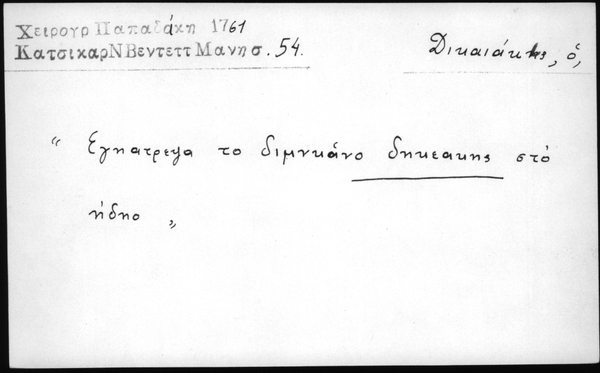 Χειρουρ Παπαδάκη 1761
Κατσικαρ Ν Βεντεττ Μανησ. 54.
Δικαιάκης, ὁ,
" Εγηατρεψα το διμνικάνο δηκεακης στὸ
ήδηο "